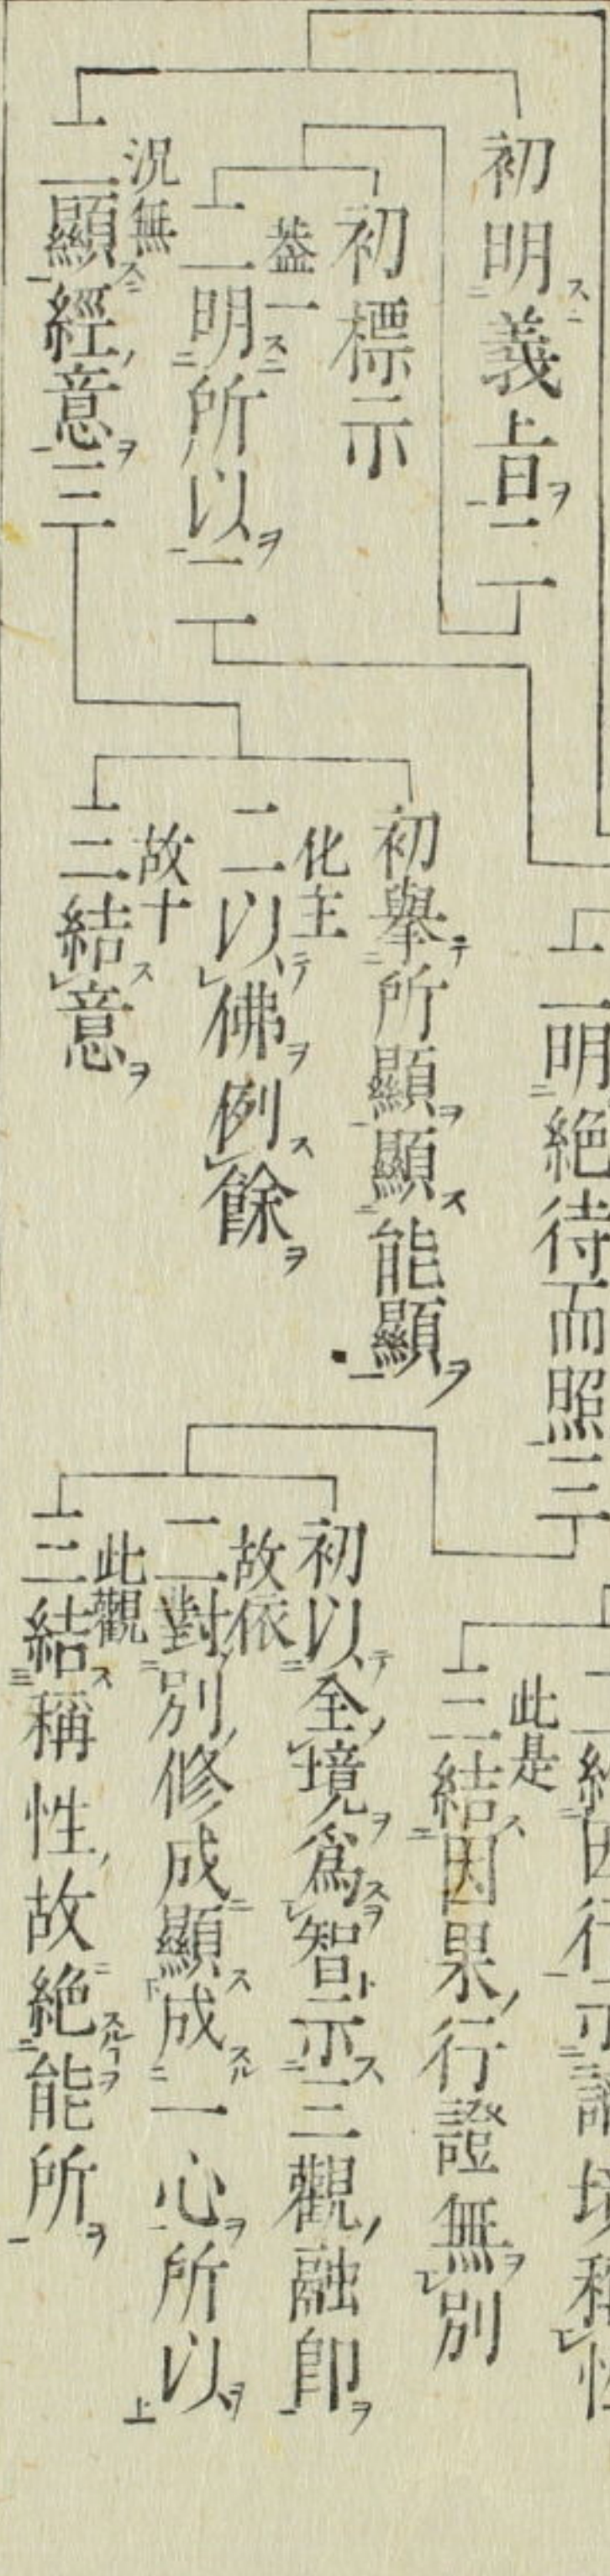 初明義旨二
初標示
蓋一
二明所以二
況無
二顯經意三
二明絶待而照三
初擧所顯顯能顯
化主
二以佛例餘
故十
三結意
此是
三結因果行證無別
初以全境爲智示三觀融即
故依
二對別修成顯成一心所以
此觀
三結稱性故絶能所